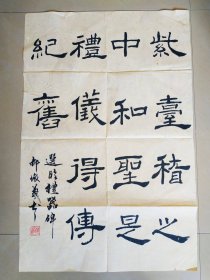 紫臺稽之
中和聖是
禮儀得傳
紀舊
選臨禮器碑